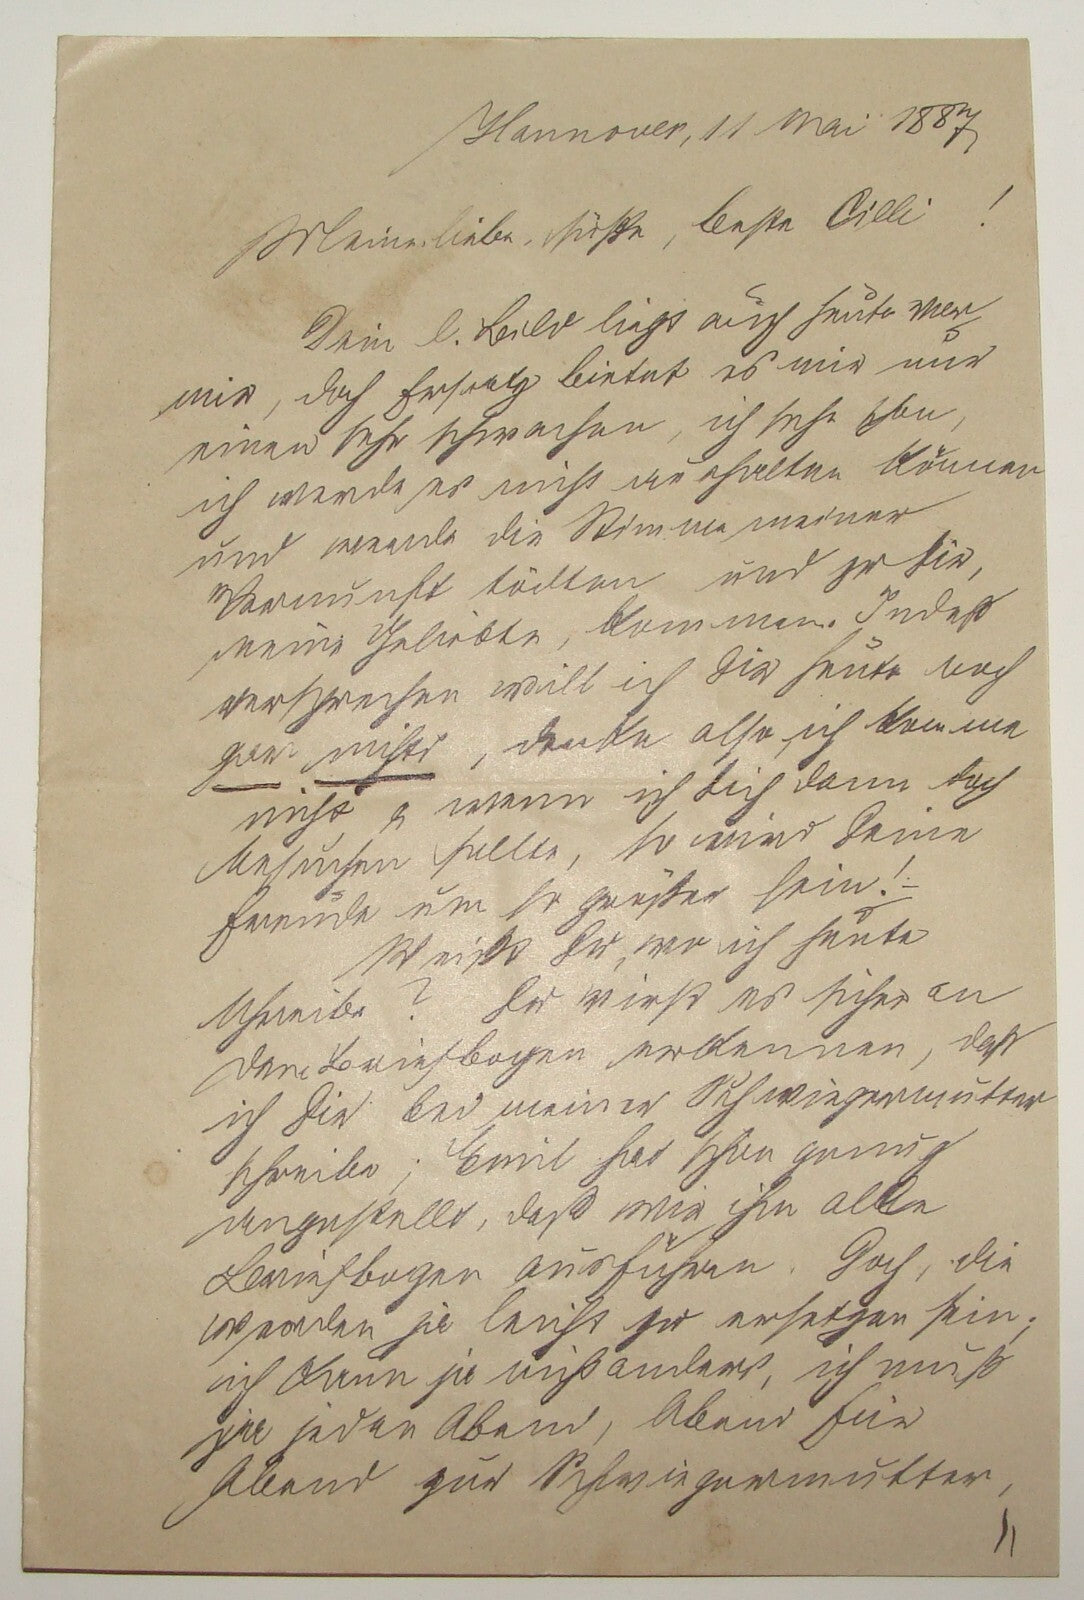 Hannover, 11 Mai 1887
Meine liebe, süße, beste Cilli !
Dein l. Bild liegt auch heute vor
mir, doch Ersatz bietet es mir nur
einen sehr schwachen, ich sehe schon,
ich werde es nicht aushalten können
und werde die Stimme meiner
Vernunft tödten und zu Dir,
meine Geliebte, kommen. Indeß
versprechen will ich Dir heute noch
gar nichts, denke also, ich komme
nicht, u wenn ich Dich dann doch
besuchen sollte, so wird Deine
Freude um so größer sein! -
Weißt Du, wo ich heute
schreibe? Du wirst es sicher an
dem Briefbogen erkennen, daß
ich Dir bei meiner Schwiegermutter
schreibe; Emil hat schon genug
angestellt, daß wir ihm alle
Briefbogen ausführen. Doch, die
werden ja leicht zu ersetzen sein;
ich kann ja nicht anders, ich muß
ja jeden Abend, Abend für
Abend zur Schwiegermutter,